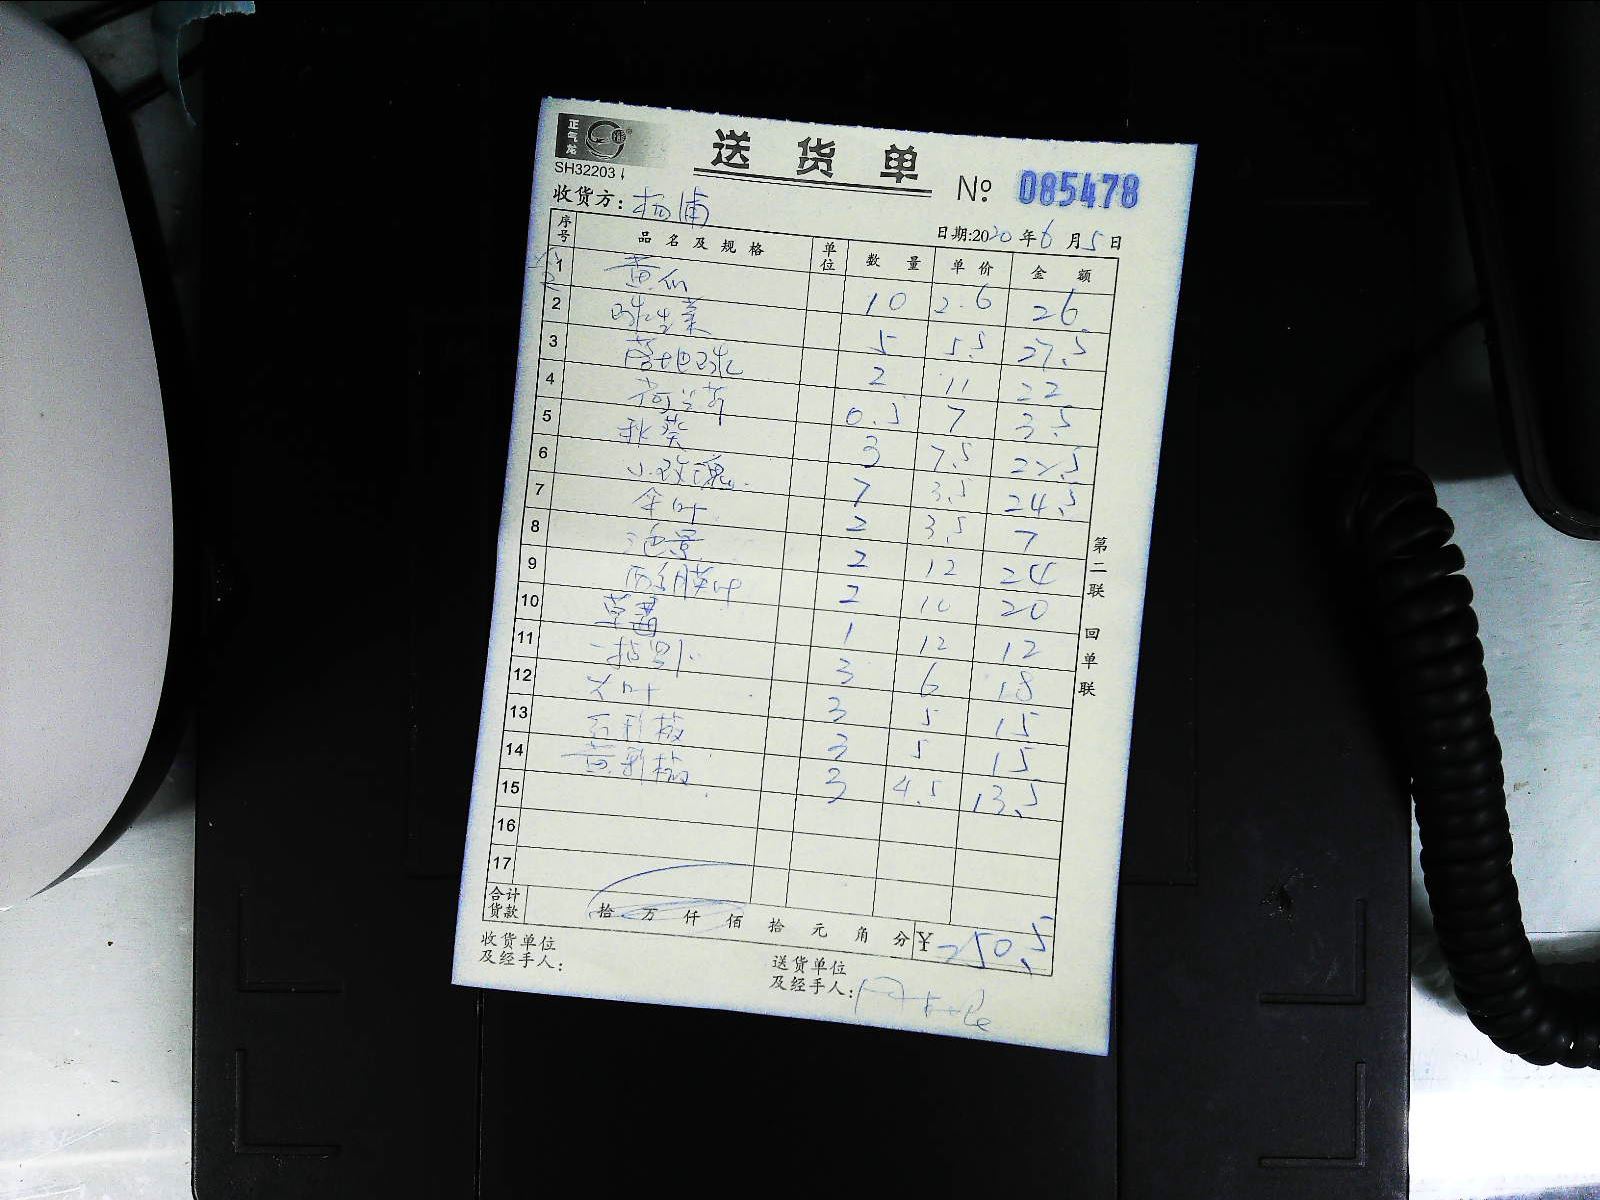 正气龙
送货单
SH32203
№ 085478
收货方: 杨浦
日期:2020年6月5日
序号 品名及规格 单位 数量 单价 金额
1 黄瓜 10 2.6 26
2 球生菜 5 5.5 27.5
3 2 11 22
4 0.5 7 3.5
5 秋葵 3 7.5 22.5
6 小玫瑰 7 3.5 24.5
7 伞叶 2 3.5 7
8 2 12 24
9 叶 2 10 20
10 草 1 12 12
11 3 6 18
12 叶 3 5 15
13 3 5 15
14 黄彩椒 3 4.5 13.5
15
16
17
合计货款 拾 万 仟 佰 拾 元 角 分 ¥250.5
收货单位及经手人:
送货单位及经手人:
第二联 回单联